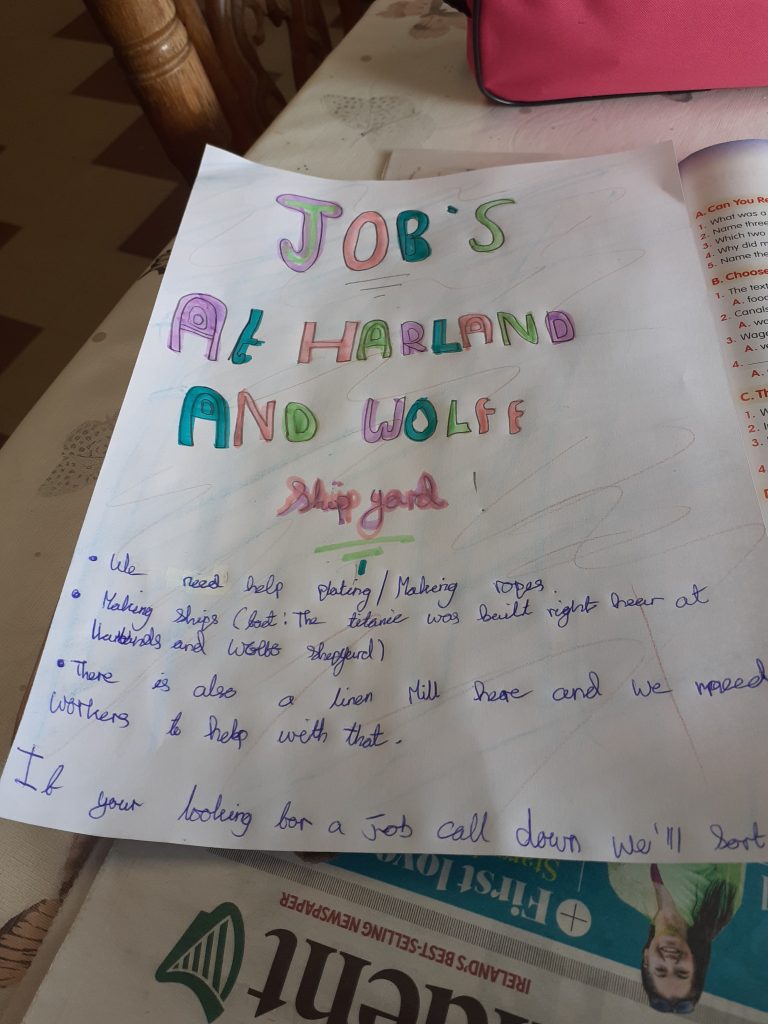 JOB'S
At HARLAND
AND WOLFF
Ship yard !
• We need help plating/Making ropes.
• Making ships (fact: The titanic was built right hear at
and Wolff shepyard)
• There is also a linen Mill here and we need
workers to help with that.
If your looking for a Job call down we'll sort
A. Can You Re
1. What was a
2. Name three
3. Which two
4. Why did m
5. Name the
B. Choose
1. The text
A. food
2. Canals
A. wa
3. Wage
A. ve
4.
A.
C. Th
1. W
2. I
3.
4
+ First love
Star
IRELAND'S BEST-SELLING NEWSPAPER
dent